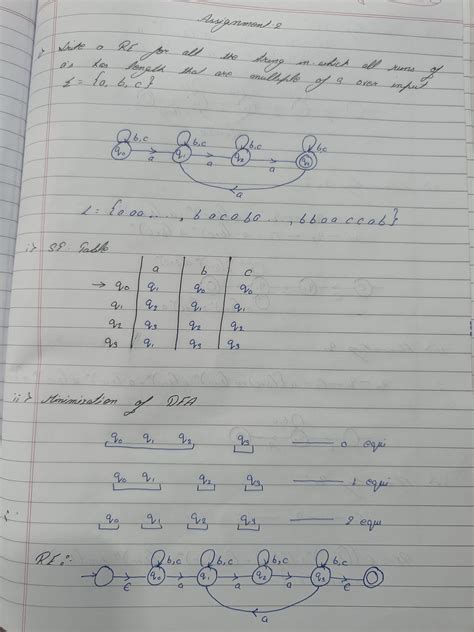 Assignment-2
Write a RE for all the string in which all runs of
a's has length that are multiple of 3 over input
Σ = {a, b, c}
b,c b,c b,c b,c
q0 a q1 a q2 a q3
a
L = {aaa...., bacaba...., bbaaccab}
i> ST Table
a b c
→ q0 q1 q0 q0
q1 q2 q1 q1
q2 q3 q2 q2
q3 q1 q3 q3
ii> Minimization of DFA
q0 q1 q2 q3 — 0 equi
q0 q1 q2 q3 — 1 equi
q0 q1 q2 q3 — 2 equi
RE:-
b,c b,c b,c b,c
ε q0 a q1 a q2 a q3 ε
a